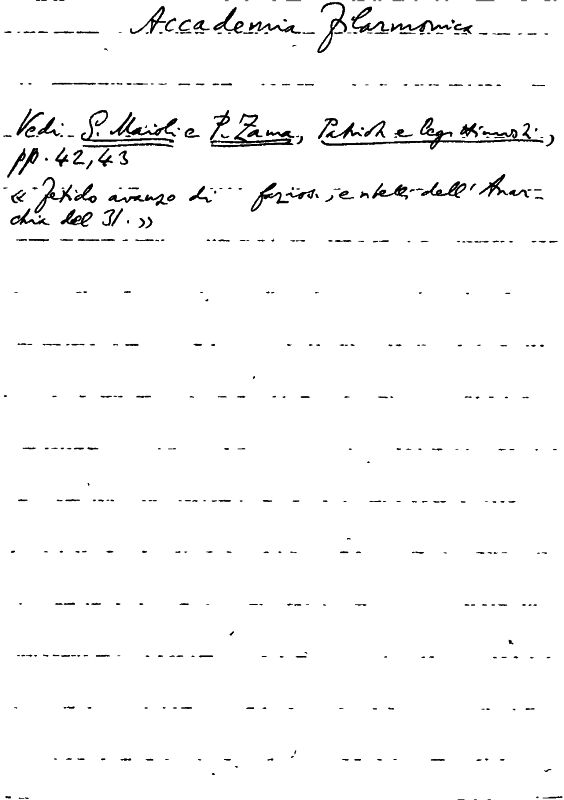 Accademia Filarmonica
Vedi S. Maioli e P. Zama, Patrioti e legittimisti,
pp. 42, 43
« Fetido avanzo di faziosi, e dell'Anar-
chia del 31. »